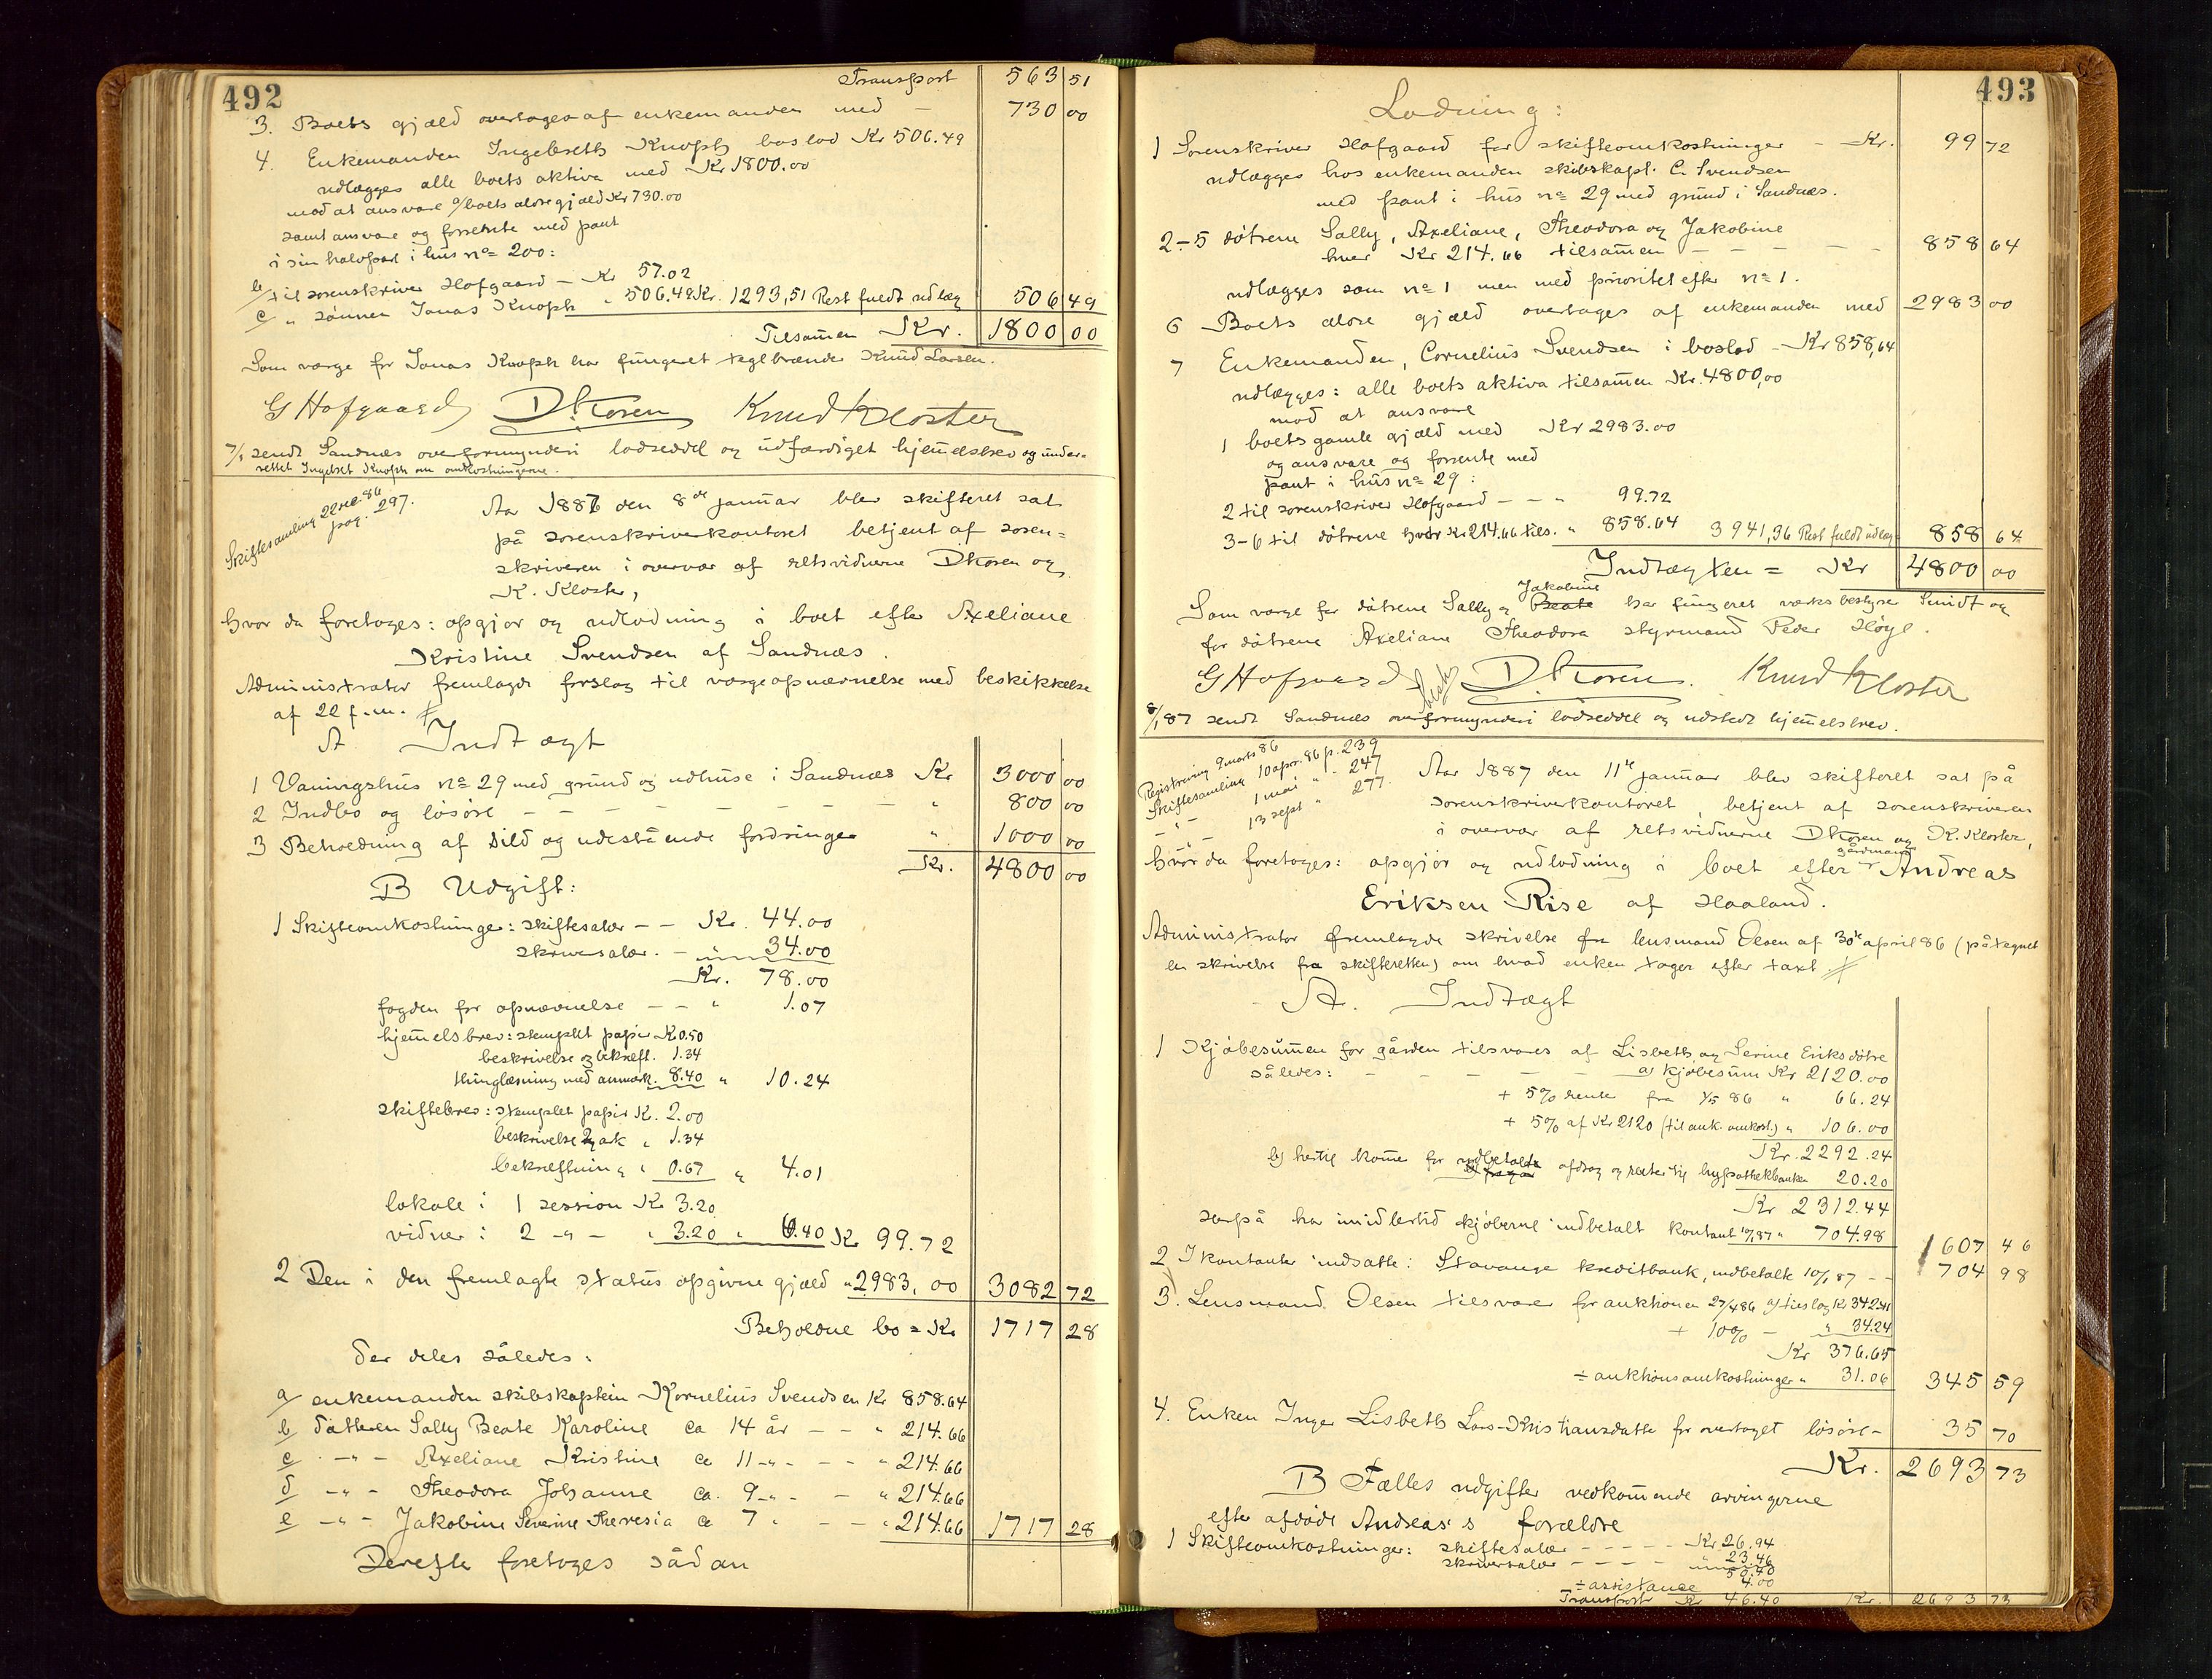 492
Transport 563 51
3. Boets gjæld overtages af enkemanden med – 730 00
4. Enkemanden Ingebreth Knoph boslod Kr 506.49
udlægges alle boets aktiva med Kr 1800.00
mod at ansvare a/ boets ældre gjæld Kr 730.00
samt ansvare og forrente med pant
i sin halvpart i hus no 200:
b/ til sorenskriver Hofgaard – Kr 57.02
c/ " sønnen Jonas Knoph " 506.49 Kr. 1293,51 Rest fuldt udlæg 506 49
Tilsamen Kr. 1800 00
Som værge for Jonas Knoph har fungeret teglbrænder Knud Larsen.
G Hofgaard DKoren Knud Kloster
7/1 sendt Sandnæs overformynderi lodseddel og udfærdiget hjemelsbrev og under-
rettet Ingebret Knoph om omkostningerne.
Skiftesamling 22 dec. 86
pag. 297.
Aar 1887 den 8de januar blev skifteret sat
på sorenskriverkontoret betjent af soren=
skriveren i overvær af retsvidnerne DKoren og
K. Kloster,
hvor da foretoges: opgjør og udlodning i boet efter Axeliane
Kristine Svendsen af Sandnæs.
Administrator fremlagde forslag til værgeopnævnelse med beskikkelse
af 22 f.m. #
A Indtægt
1 Vaaningshus no 29 med grund og udhuse i Sandnæs Kr 3000 00
2 Indbo og løsøre – – – – – – – " 800 00
3 Beholdning af sild og udestående fordringer " 1000 00
Kr. 4800 00
B Udgift:
1 Skifteomkostninger: skiftesalær – – Kr. 44.00
skriversalær. – " 34.00
Kr. 78.00
fogden for opnævnelse – – " 1.07
hjemelsbrev: stemplet papir Kr 0.50
beskrivelse og bekræft. 1.34
thinglæsning med anmærk. 8.40 " 10.24
skiftebrev: stemplet papir K. 2.00
beskrivelse 2 ark " 1.34
bekræftning " 0.67 " 4.01
lokale i 1 session Kr 3.20
vidner i 2 –"– " 3.20 " 6.40 Kr 99.72
2 Den i den fremlagte status opgivne gjæld " 2983.00 3082 72
Beholdne bo = Kr 1717 28
der deles således:
a/ enkemanden skibskaptein Kornelius Svendsen Kr 858.64
b/ datteren Sally Beate Karoline ca 14 år – – " 214.66
c/ –"– Axeliane Kristine ca 11 –"– – – " 214.66
d –"– Theodora Johanne ca. 9 –"– – " 214.66
e –"– Jakobine Severine Theresia ca 7 " – – " 214.66 1717 28
Derefter foretoges sådan
493
Lodning:
1 Sorenskriver Hofgaard for skifteomkostninger – Kr. 99 72
udlægges hos enkemanden skibskapt. C. Svendsen
med pant i hus no 29 med grund i Sandnæs.
2–5 døtrene Sally, Axeliane, Theodora og Jakobine
hver Kr 214.66 tilsamen – – – – 858 64
udlægges som no 1 men med prioritet efter no 1.
6 Boets ældre gjæld overtages af enkemanden med 2983 00
7 Enkemanden, Cornelius Svendsen i boslod – Kr 858,64
udlægges: alle boets aktiva tilsamen Kr. 4800,00
mod at ansvare
1 boets gamle gjæld med Kr 2983.00
og ansvare og forrente med
pant i hus no 29:
2 til sorenskriver Hofgaard – – " 99.72
3–6 til døtrene hver Kr 214.66 tils. " 858.64 3941,36 Rest fuldt udlæg 858 64
Indtægten = Kr 4800 00
Jakobine
Som værge for døtrene Sally og Beate har fungeret værksbestyrer Smidt og
for døtrene Axeliane Theodora styrmand Peder Høyl.
G Hofgaard DKoren. Knud Kloster
8/1 87 sendt Sandnæs overformynderi lodseddel og udstedt hjemelsbrev.
Registrering 9 marts 86
Skiftesamling 10 apr. 86 p. 239
–"– 1 mai " " 247
–"– 13 sept " 277.
Aar 1887 den 11te januar blev skifteret sat på
sorenskriverkontoret, betjent af sorenskriveren
i overvær af retsvidnerne DKoren og K. Kloster,
gårdmand
hvor da foretoges: opgjør og udlodning i boet efter Andreas
Eriksen Rise af Haaland.
Administrator fremlagde skrivelse fra lensmand Olsen af 30te april 86 (påtegnet
en skrivelse fra skifteretten) om hvad enken tager efter taxt #
A. Indtægt
1 Kjøbesummen for gården tilsvares af Lisbeth og Serine Eriksdøtre
således: – – – – – a) kjøbesum Kr 2120.00
+ 5% rente fra 1/5 86 " 66.24
+ 5% af Kr 2120 (til auk. omkost.) " 106.00
Kr. 2292.24
b) hertil kome for udbetalte afdrag og renter til hypothekbanken 20.20
Kr 2312.44
herpå har imidlertid kjøberne indbetalt kontant 10/1 87 " 704.98 1607 46
2 I kontanter indsatte: Stavanger kreditbank, indbetalte 10/1 87 – – 704 98
3. Lensmand Olsen tilsvarer for auktionen 27/4 86 a) tilslag Kr 342.41
+ 10% – " 34.24
Kr 376.65
÷ auktionsomkostninger " 31.06 345 59
4. Enken Inger Lisbeth Lars-Kristiansdatter for overtaget løsøre – 35 70
Kr. 2693 73
B Fælles udgifter vedkomende arvingerne
efter afdøde Andreas's forældre
1 Skifteomkostninger: skiftesalær – – – – – Kr 26.94
skriversalær – – – – " 23.46
50.40
÷ assistance 4.00
Transport Kr 46.40 Kr. 2693 73